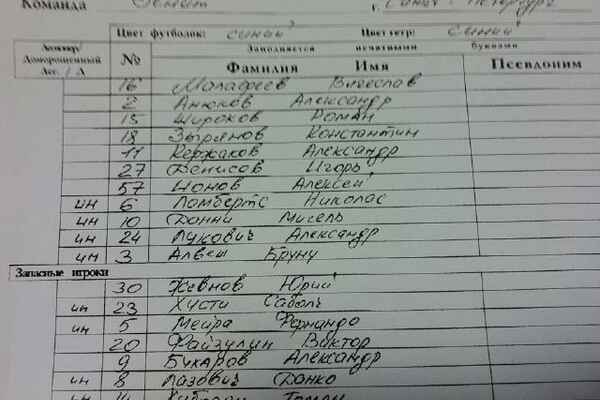 Команда Зенит г. Санкт-Петербург
Цвет футболок: синий Цвет гетр: синий
Легионер/ Доморощенный Лег. / Д № Заполняется печатными буквами
Фамилия Имя Псевдоним
16 Малафеев Вячеслав
2 Анюков Александр
15 Широков Роман
18 Зырянов Константин
11 Кержаков Александр
27 Денисов Игорь
57 Ионов Алексей
ин 6 Ломбертс Николас
ин 10 Данни Мигель
ин 24 Лукович Александр
ин 3 Алвеш Бруну
Запасные игроки
30 Жевнов Юрий
ин 23 Хусти Саболч
ин 5 Мейра Фернандо
20 Файзулин Виктор
9 Бухаров Александр
ин 8 Лазович Данко